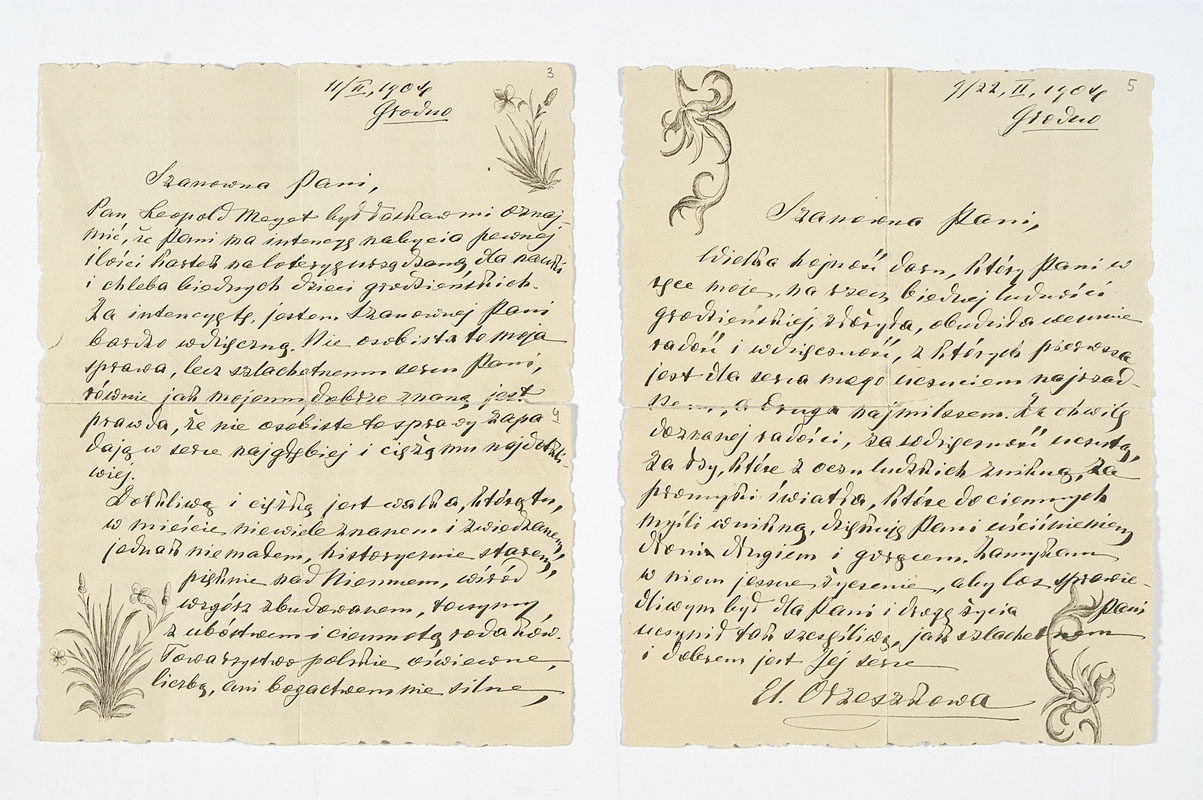 3
11/II, 1904
Grodno
Szanowna Pani,
Pan Leopold Meyet był łaskaw mi oznaj-
mić, że Pani ma intencyę nabycia pewnej
ilości kartek na loteryę urządzaną dla nauki
i chleba biednych dzieci grodzieńskich.
Za intencyę tę, jestem Szanownej Pani
bardzo wdzięczną. Nie osobista to moja
sprawa, lecz szlachetnemu sercu Pani,
równie jak mojemu, dobrze znaną jest
prawda, że nie osobiste to sprawy zapa
dają w serce najgłębiej i ciężą mu najdotkli-
wiej.
Dotkliwą i ciężką jest walka, którą tu,
w mieście niewiele znanem i zwiedzanem,
jednak niemałem, historycznie starem,
pięknie nad Niemnem, wśród
wzgórz zbudowanem, toczymy
z ubóstwem i ciemnotą rodaków.
Towarzystwo polskie oświecone,
liczbą, ani bogactwem nie silne,
4
5
9/22, II, 1904
Grodno
Szanowna Pani,
Wielka hojność daru, który Pani w
ręce moje, na rzecz biednej ludności
grodzieńskiej, złożyła, obudziła we mnie
radość i wdzięczność, z których pierwsza
jest dla serca mego uczuciem najrzad-
szem, a druga najmilszem. Za chwilę
doznanej radości, za wdzięczność uczutą,
za łzy, które z oczu ludzkich znikną, za
promyki światła, które do ciemnych
myśli wnikną, dziękuję Pani uściśnieniem
dłoni długiem i gorącem. Zamykam
w niem jeszcze życzenie, aby los sprawie-
dliwym był dla Pani i drogę życia Pani
uczynił tak szczęśliwą, jak szlachetnem
i dobrem jest Jej serce
El. Orzeszkowa